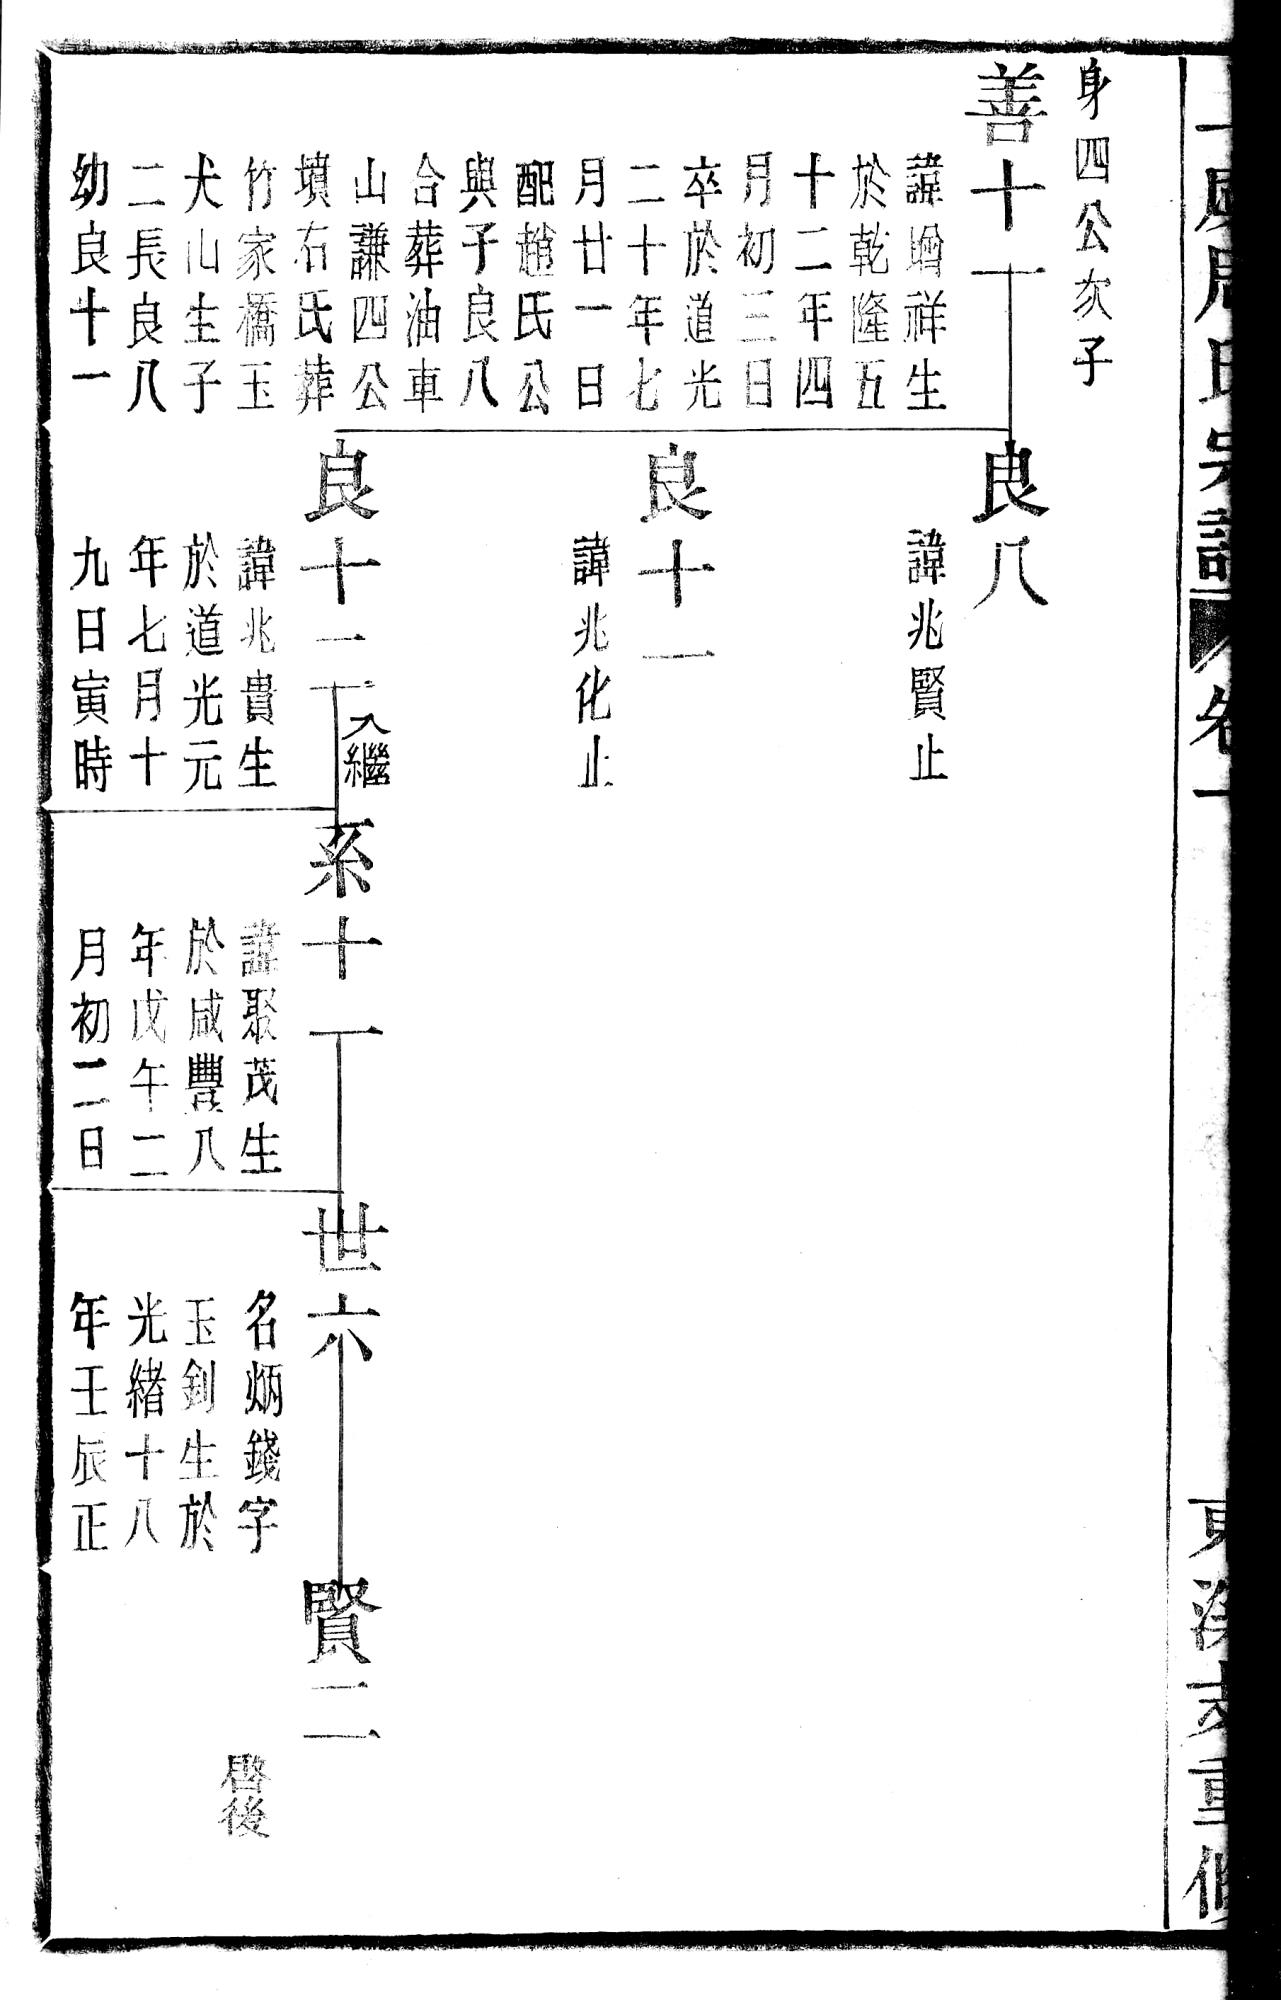 身四公次子
善十一
諱增祥生
於乾隆五
十二年四
月初三日
卒於道光
二十年七
月廿一日
配趙氏公
與子良八
合葬油車
山謙四公
墳右氏葬
竹家橋玉
犬山生子
二長良八
幼良十一
良八
諱兆賢止
良十一
諱兆化止
良十二
入繼
諱兆貴生
於道光元
年七月十
九日寅時
系十一
諱聚茂生
於咸豐八
年戊午二
月初二日
世六
名炳錢字
玉釗生於
光緒十八
年壬辰正
賢二
啓後
氏宗譜
卷一
東
重修